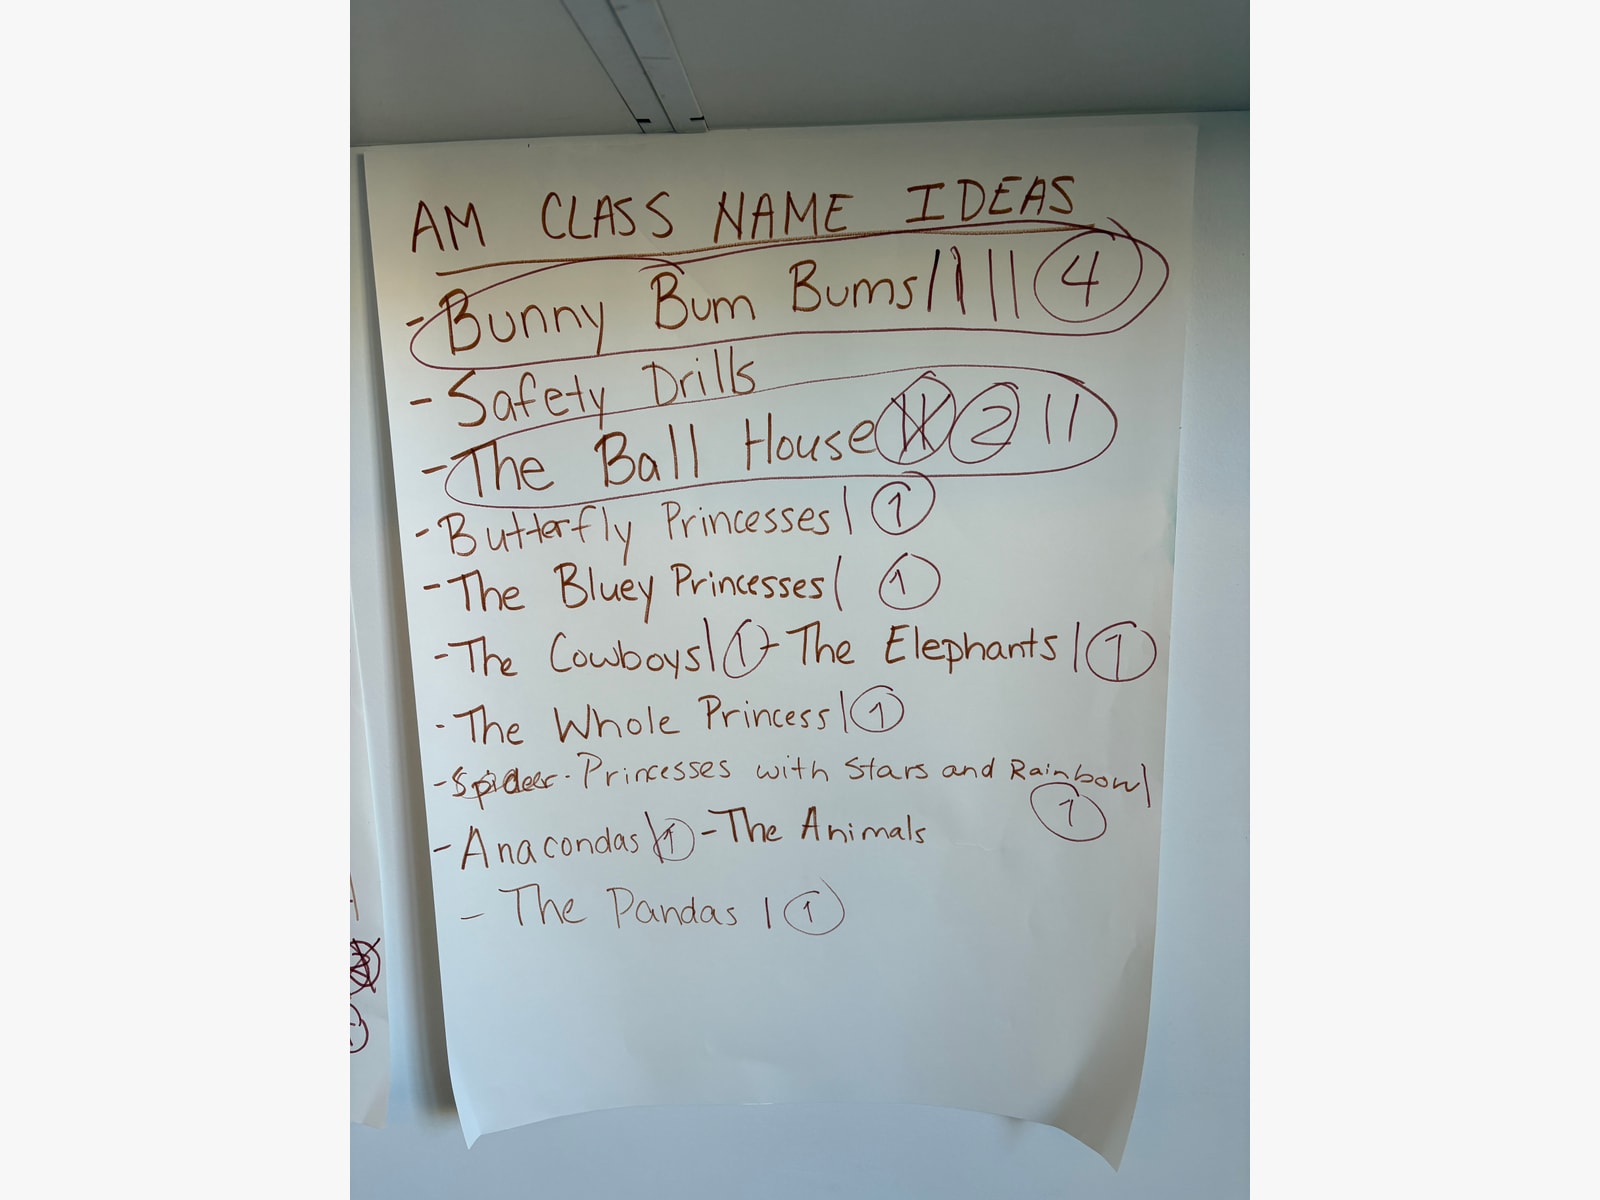 AM CLASS NAME IDEAS
- Bunny Bum Bums |||| 4
- Safety Drills
- The Ball House 2 ||
- Butterfly Princesses | 1
- The Bluey Princesses | 1
- The Cowboys | 1 - The Elephants | 1
- The Whole Princess | 1
- Spider - Princesses with Stars and Rainbow | 1
- Anacondas | 1 - The Animals
- The Pandas | 1